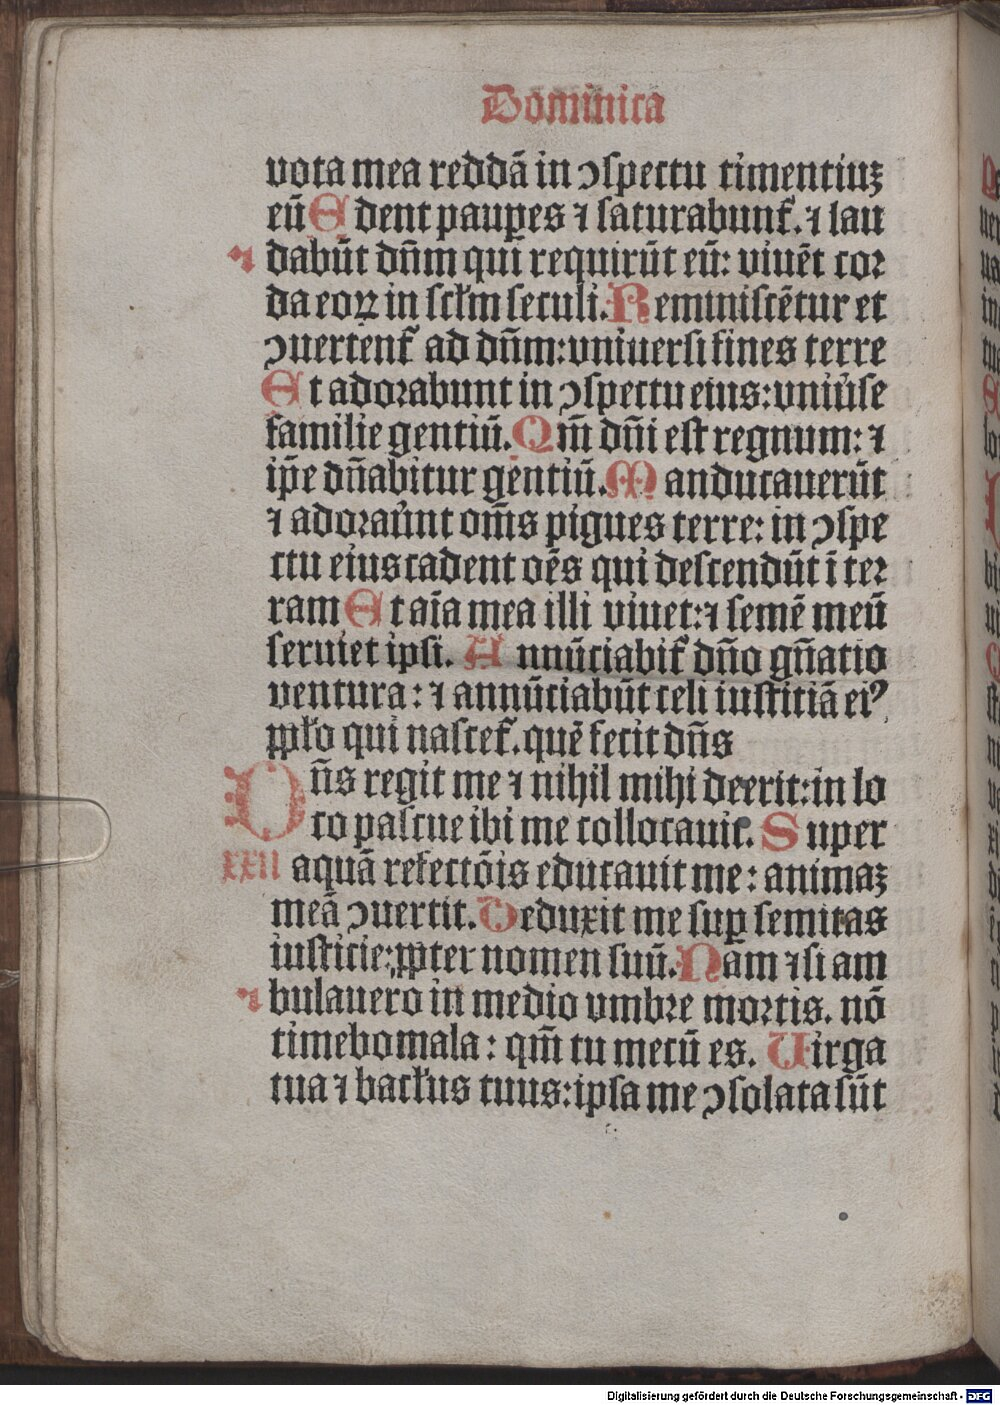 Dominica
vota mea reddā in ɔspectu timentiuʒ
eū Edent paup̱es ⁊ saturabunt᷑. ⁊ lau
⁊ dabūt dn̄m qui requirūt eū: viuēt cor
da eoꝝ in sctm̄ seculi. Reminiscētur et
ɔuertent᷑ ad dn̄m: vniuersi fines terre
Et adorabunt in ɔspectu eius: vniu̓se
familie gentiū. Qm̄ dn̄i est regnum: ⁊
ip̄e dn̄abitur gentiū. Manducauerūt
⁊ adorau̓nt om̄s pigues terre: in ɔspe
ctu eius cadent oēs qui descendūt ī ter
ram Et aīa mea illi viuet: ⁊ semē meū
seruiet ipsi. Annūciabit᷑ dn̄o gn̄atio
ventura: ⁊ annūciabūt celi iustitiā eiꝰ
pp̄lo qui nascet᷑. quē fecit dn̄s
Dn̄s regit me ⁊ nihil mihi deerit: in lo
co pascue ibi me collocauit. Super
xxii aquā refectōis educauit me: animaʒ
meā ɔuertit. Deduxit me sup̱ semitas
iusticie: ꝓpter nomen suū. Nam ⁊ si am
⁊ bulauero in medio vmbre mortis. nō
timebo mala: qm̄ tu mecū es. Uirga
tua ⁊ bacl̄us tuus: ipsa me ɔsolata sūt
Digitalisierung gefördert durch die Deutsche Forschungsgemeinschaft - DFG